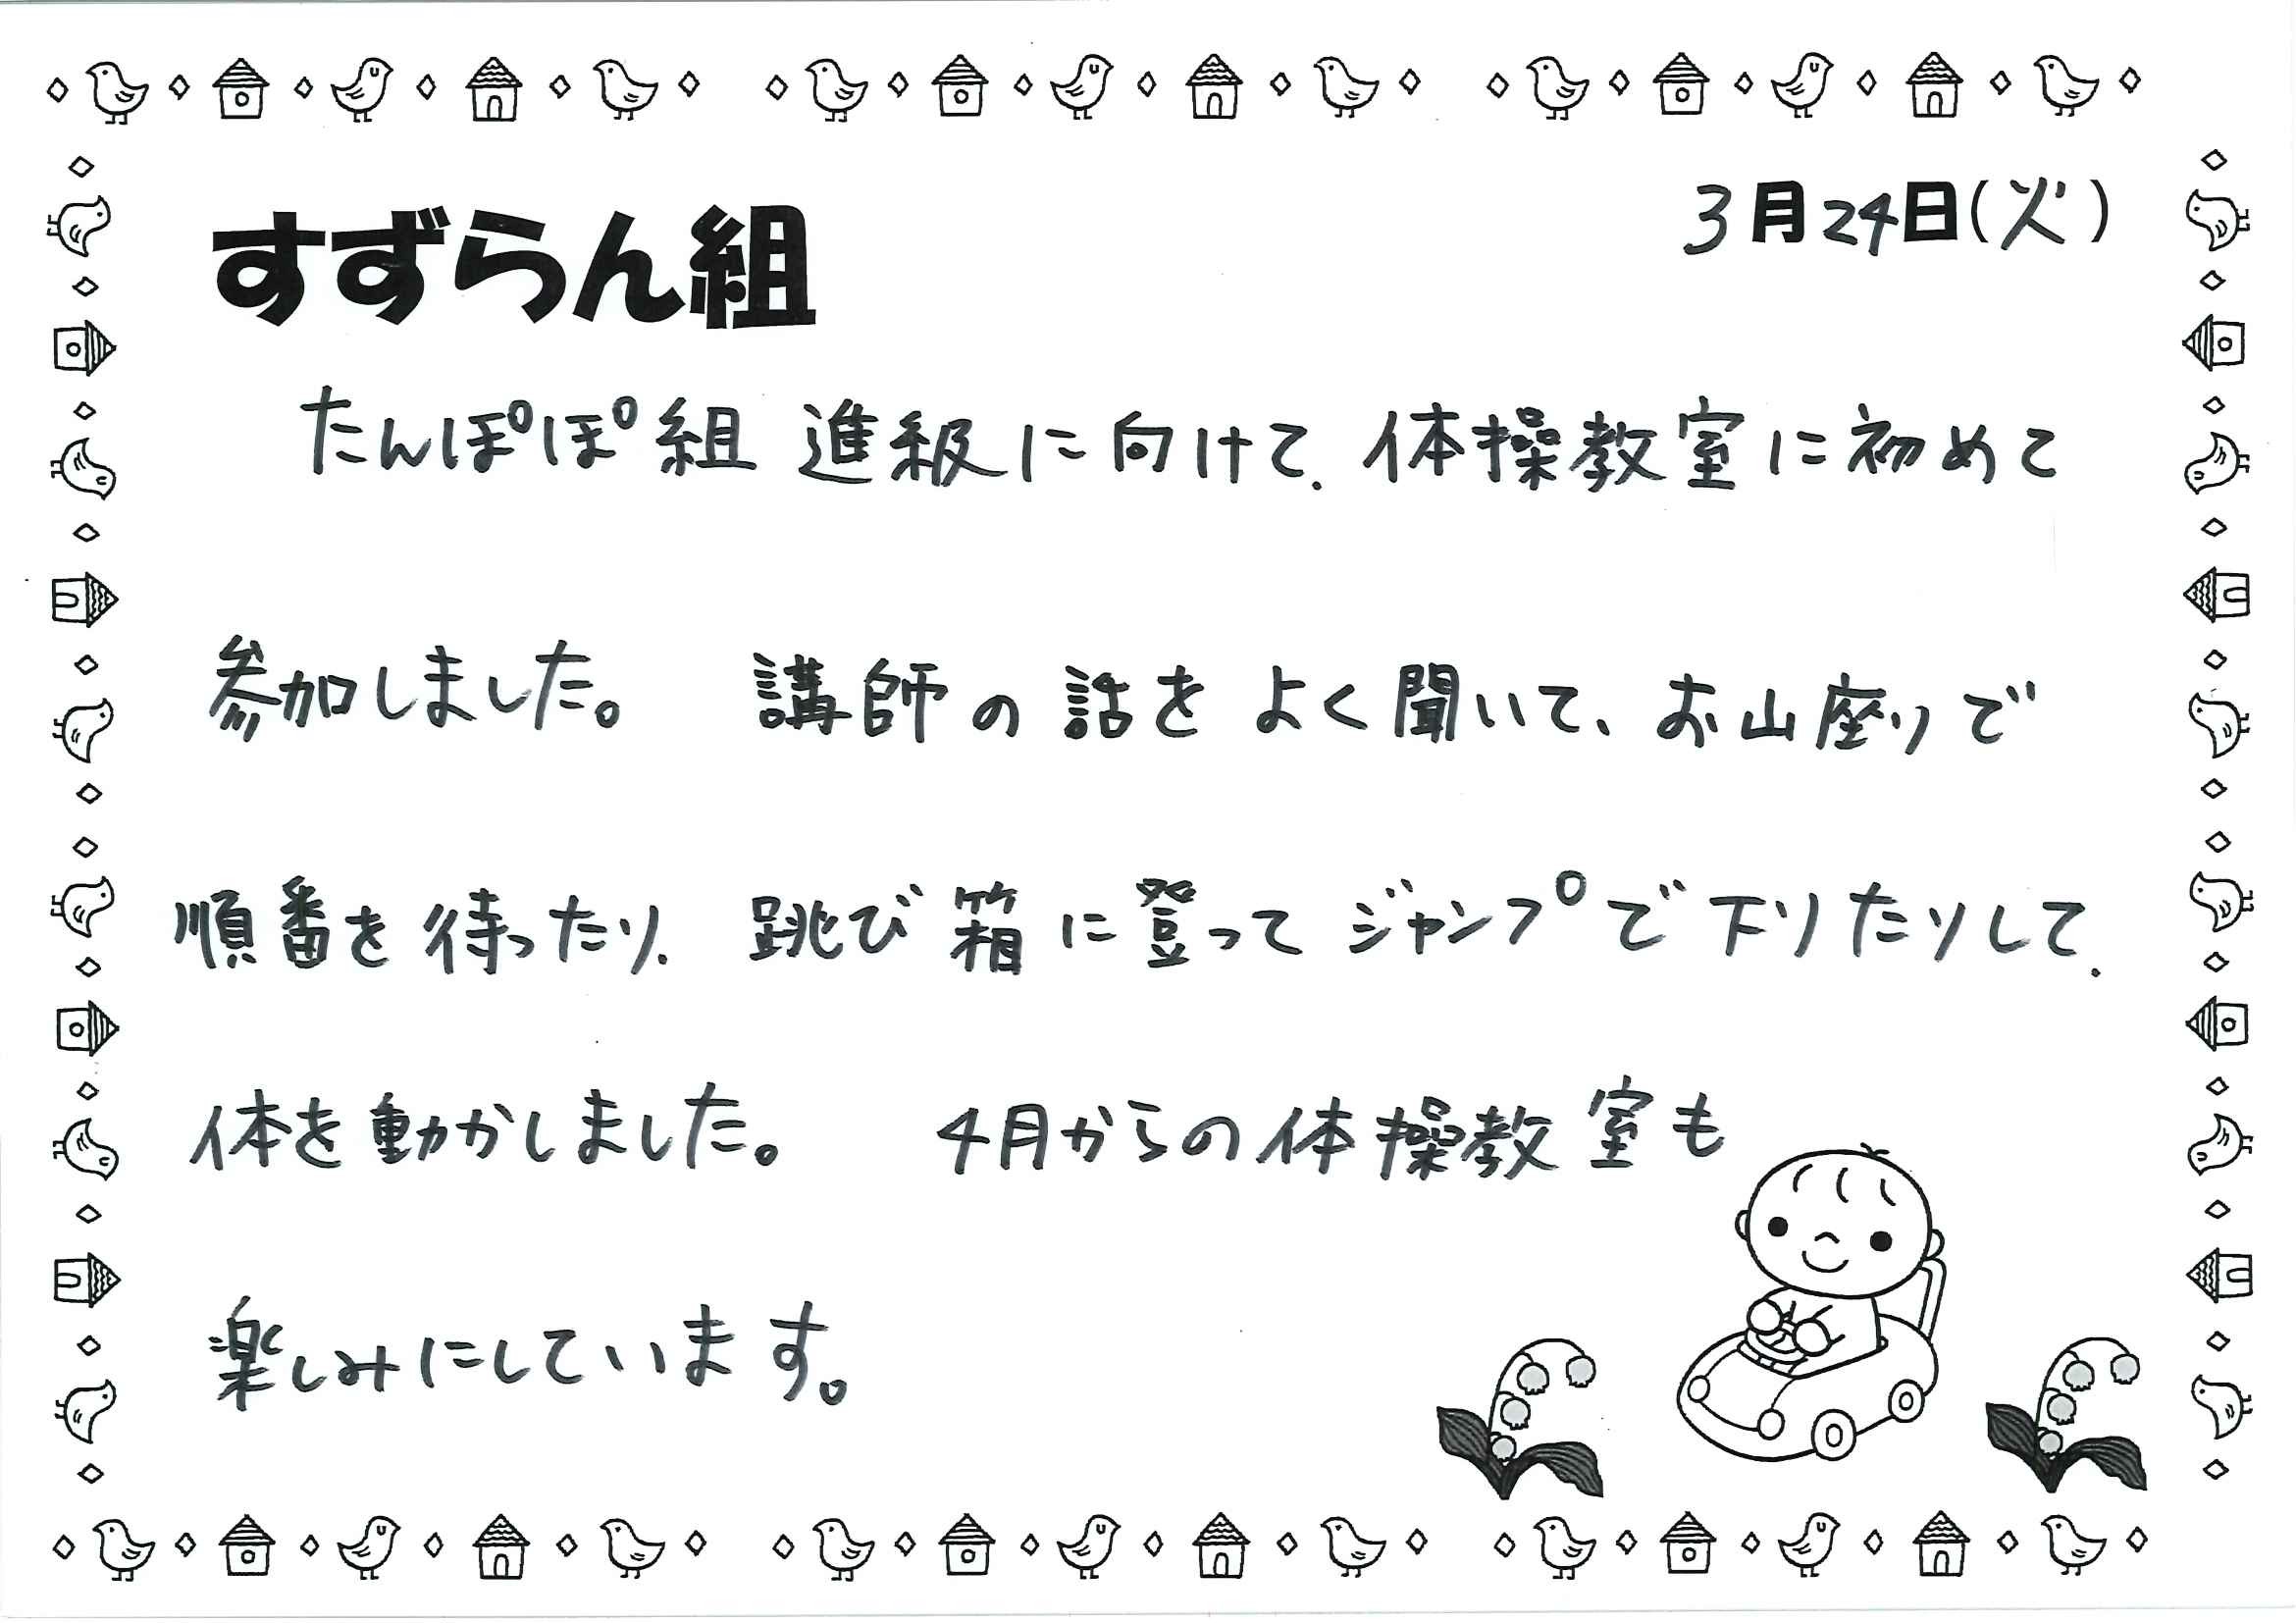 すずらん組
3月24日(火)
たんぽぽ組 進級に向けて、体操教室に初めて
参加しました。 講師の話をよく聞いて、お山座りで
順番を待ったり、跳び箱に登ってジャンプで下りたりして、
体を動かしました。 4月からの体操教室も
楽しみにしています。